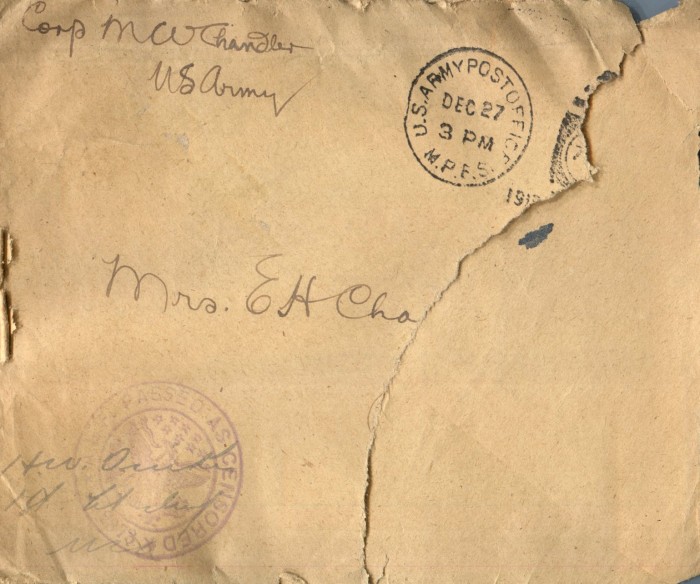 Corp M W Chandler
US Army
U.S. ARMY POST OFFICE
DEC 27
3 PM
M.P.E.S.
191
Mrs. E H Cha
PASSED AS CENSORED